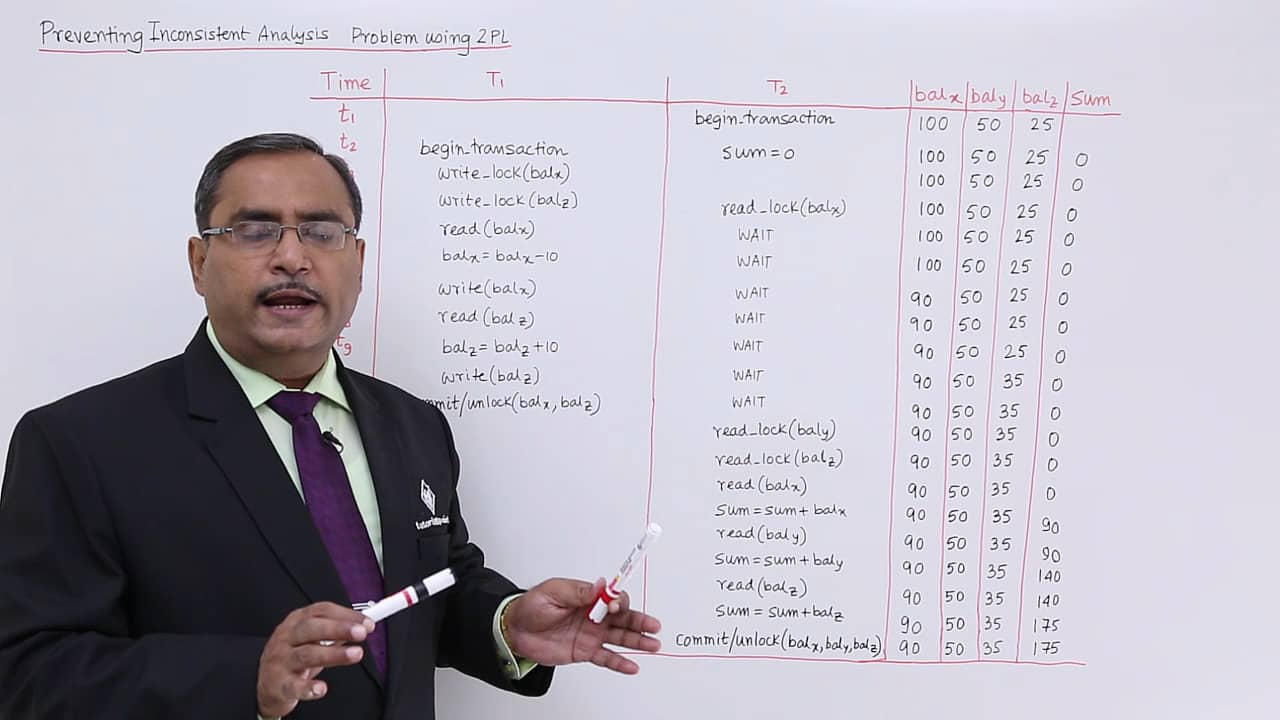 Preventing Inconsistent Analysis Problem using 2PL
Time T1 T2 balx baly balz Sum
t1 begin_transaction 100 50 25
t2 begin_transaction sum=0 100 50 25 0
write_lock(balx) 100 50 25 0
write_lock(balz) read_lock(balx) 100 50 25 0
read(balx) WAIT 100 50 25 0
balx=balx-10 WAIT 100 50 25 0
write(balx) WAIT 90 50 25 0
read(balz) WAIT 90 50 25 0
t9 balz=balz+10 WAIT 90 50 25 0
write(balz) WAIT 90 50 35 0
mmit/unlock(balx,balz) WAIT 90 50 35 0
read_lock(baly) 90 50 35 0
read_lock(balz) 90 50 35 0
read(balx) 90 50 35 0
sum=sum+balx 90 50 35 90
read(baly) 90 50 35 90
sum=sum+baly 90 50 35 140
read(balz) 90 50 35 140
sum=sum+balz 90 50 35 175
commit/unlock(balx,baly,balz) 90 50 35 175